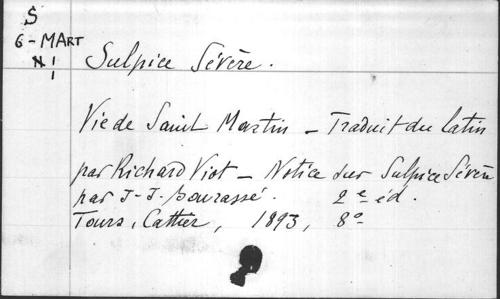 S
6 - MART
N 1
1
Sulpice Sévère.
Vie de Saint Martin _ Traduit du latin
par Richard Viot _ Notice sur Sulpice Sévère
par J-J. Bourassé. 2e éd.
Tours, Cattier, 1893, 8°